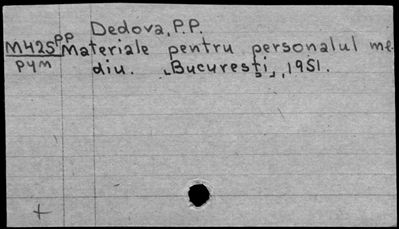 Dedova, P.P.
M425pp Materiale pentru personalul me-
рум diu. „Bucureşti", 1951.
+